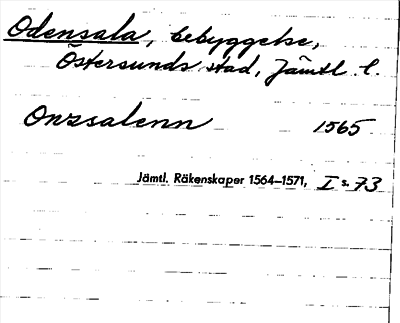 Odensala, bebyggelse,
Östersunds stad, Jämtl. l.
Onssalenn 1565
Jämtl. Räkenskaper 1564–1571, I s. 73